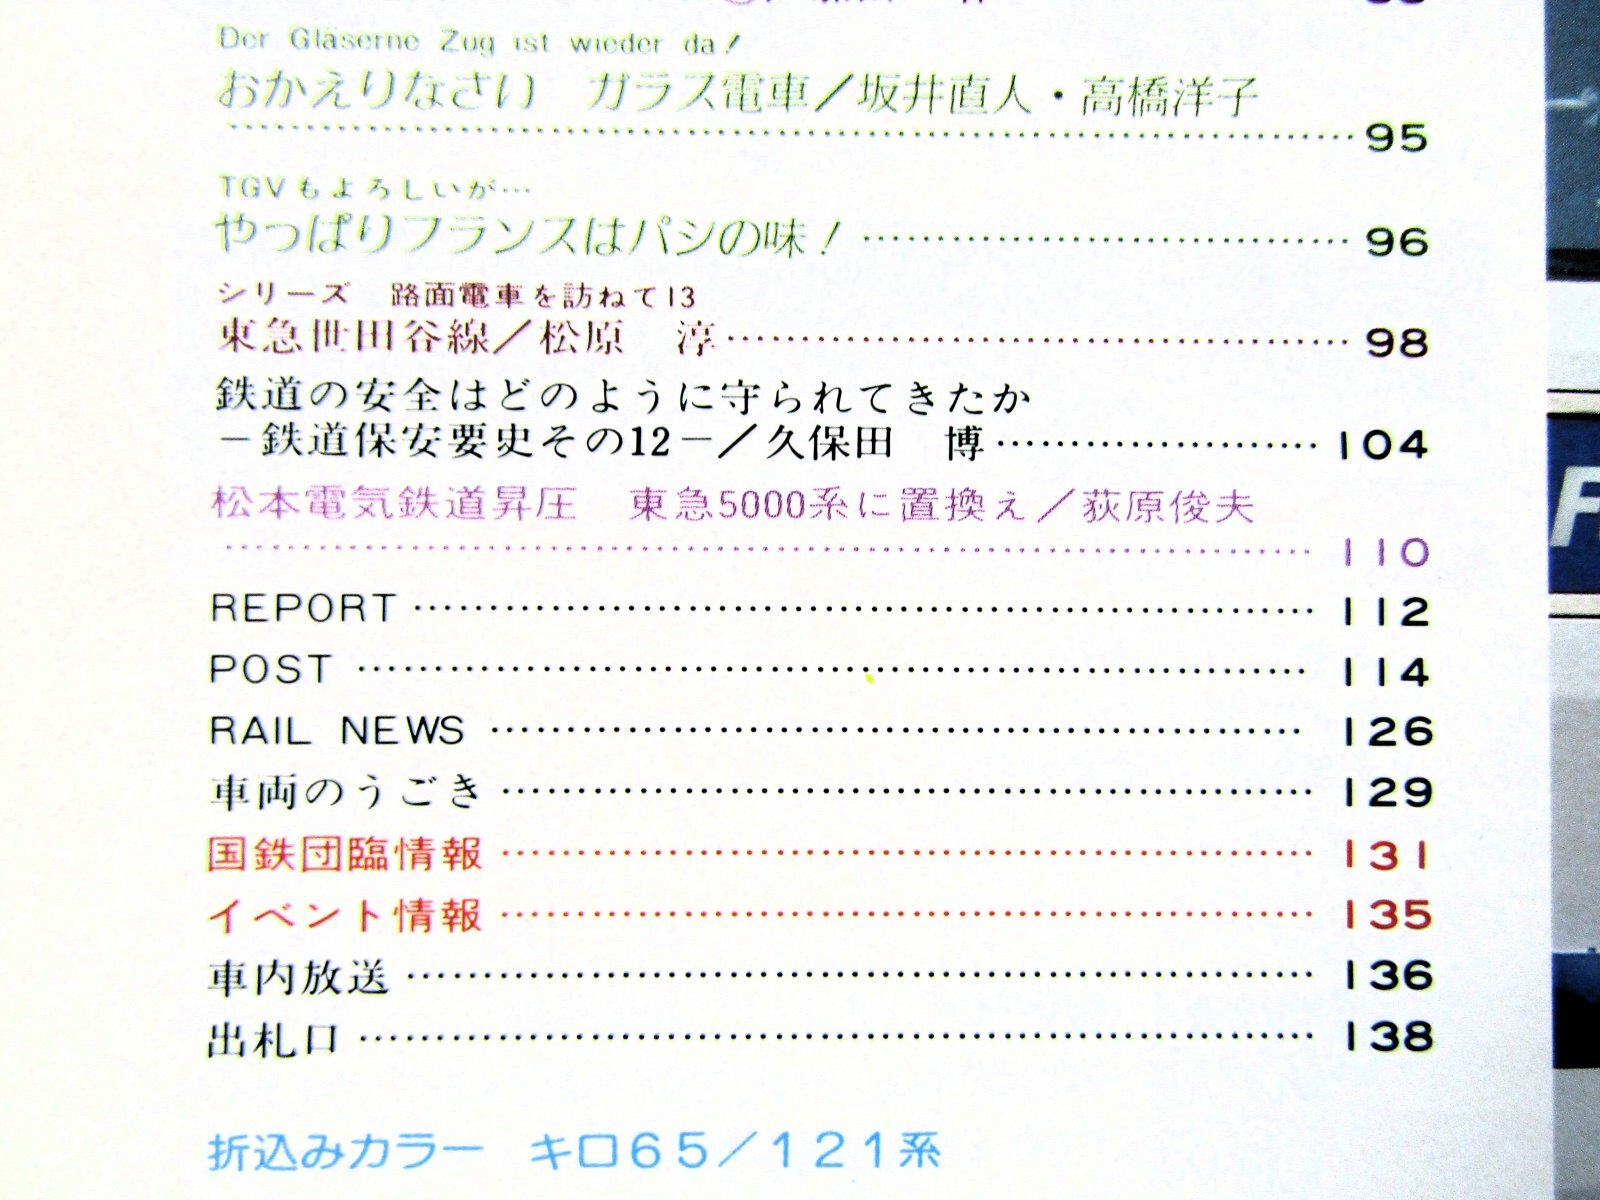 Der Gläserne Zug ist wieder da!
おかえりなさい ガラス電車／坂井直人・高橋洋子
……………………………………………………95
TGVもよろしいが…
やっぱりフランスはパシの味！……………………96
シリーズ 路面電車を訪ねて13
東急世田谷線／松原 淳……………………………98
鉄道の安全はどのように守られてきたか
－鉄道保安要史その12－／久保田 博………………104
松本電気鉄道昇圧 東急5000系に置換え／荻原俊夫
……………………………………………………110
REPORT……………………………………………112
POST………………………………………………114
RAIL NEWS…………………………………………126
車両のうごき…………………………………………129
国鉄団臨情報…………………………………………131
イベント情報…………………………………………135
車内放送………………………………………………136
出札口…………………………………………………138
折込みカラー キロ65／121系